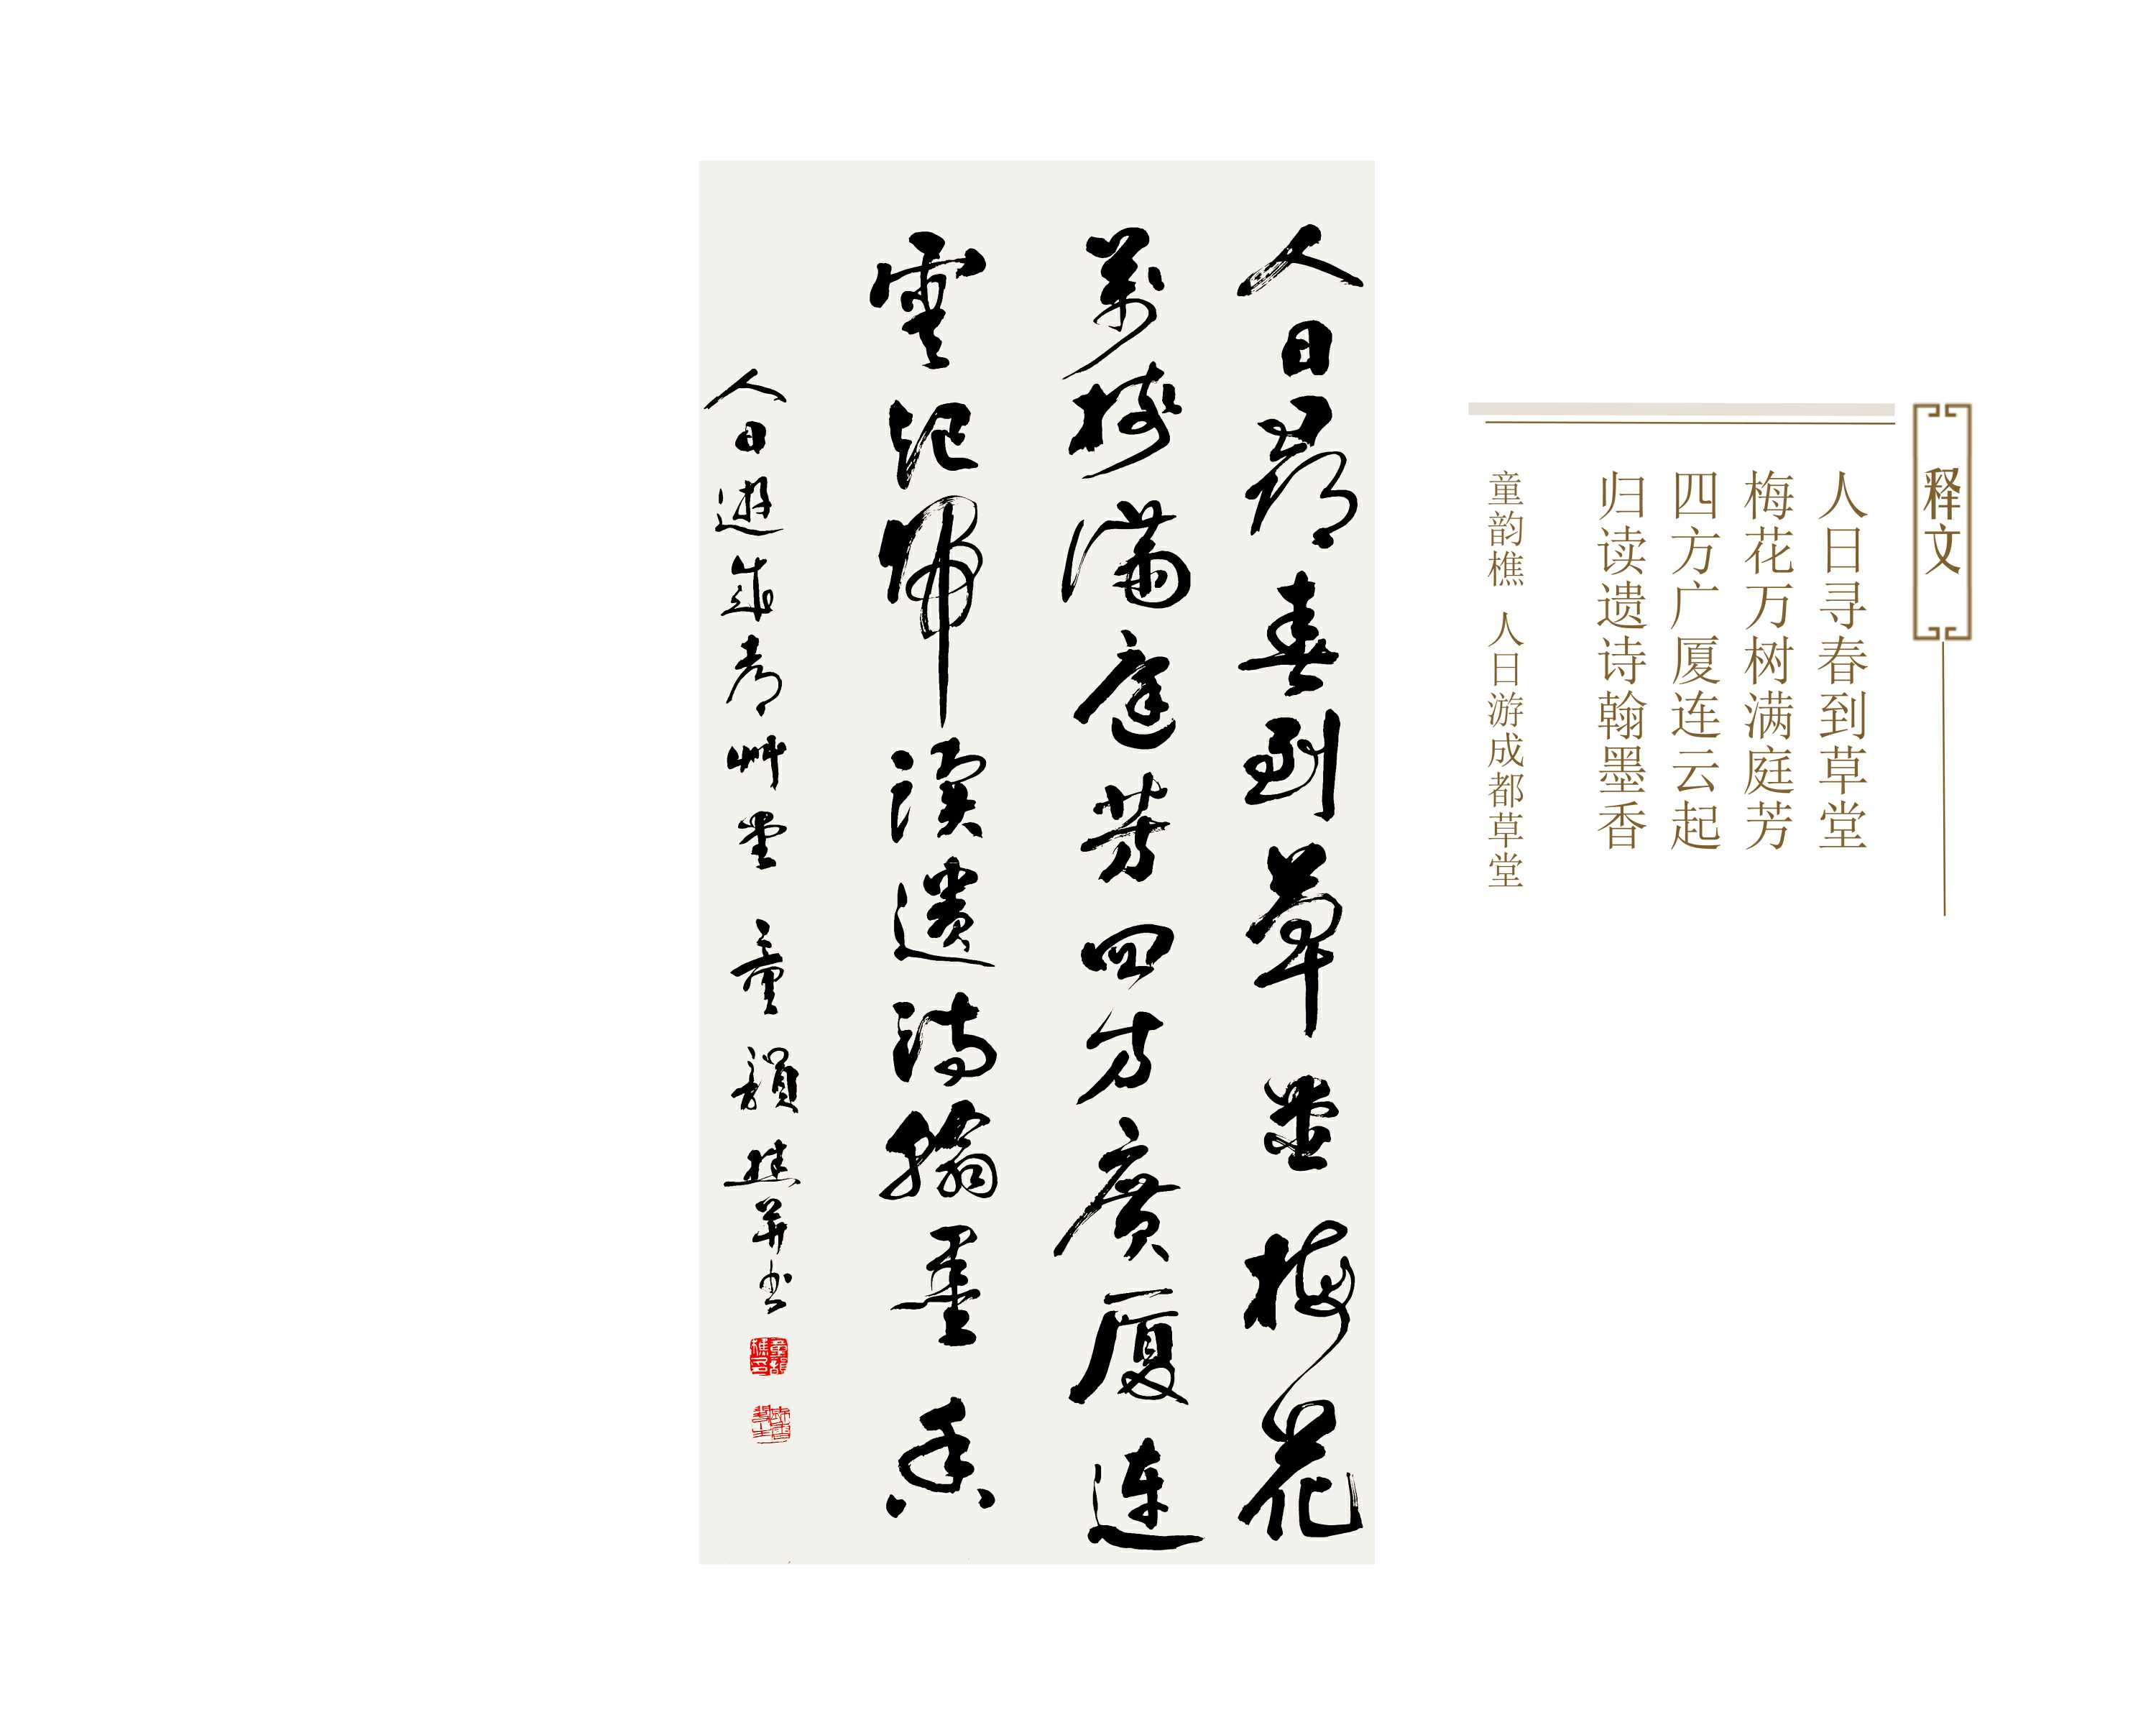 释文
人日寻春到草堂
梅花万树满庭芳
四方广厦连云起
归读遗诗翰墨香
童韵樵 人日游成都草堂
人日尋春到草堂梅花
萬樹滿庭芳四方廣厦連
雲起歸讀遺詩翰墨香
人日遊成都艸堂 童韻樵并书